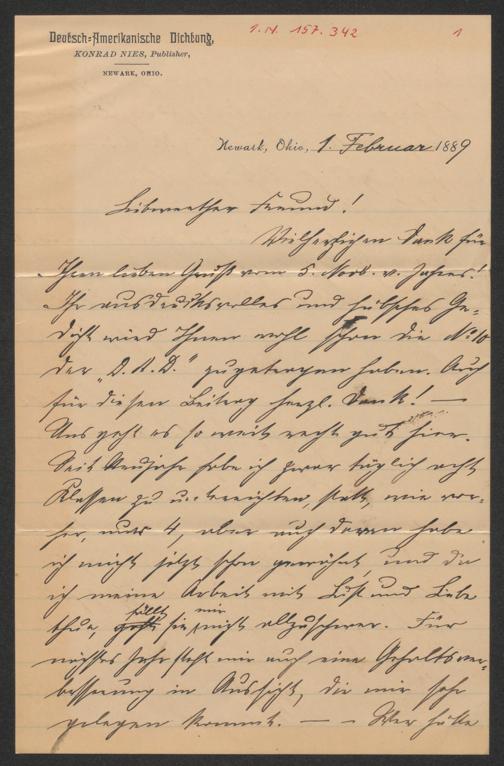 Deutsch-Amerikanische Dichtung,
KONRAD NIES, Publisher,
NEWARK, OHIO.
I.N. 157.342
1
Newark, Ohio, 1. Februar 1889
Liebwerther Freund!
Vielherzlichen Dank für
Ihren lieben Gruß vom 5. Novb. v. Jahres!
Ihr ausdrucksvolles und hübsches Ge-
dicht wird Ihnen wohl schon die No 10
der „D. A. D.“ zugetragen haben. Auch
für diesen Beitrag herzl. Dank! —
Uns geht es so weit recht gut hier.
Seit Neujahr habe ich zwar täglich acht
Klassen zu unterrichten, statt, wie vor-
her, nur 4, aber auch daran habe
ich mich jetzt schon gewöhnt, und da
ich meine Arbeit mit Lust und Liebe
thue, fällt sie mir nicht allzuschwer. Für
nächstes Jahr steht mir auch eine Gehaltsver-
besserung in Aussicht, die mir sehr
gelegen kommt. — — Wer hätte